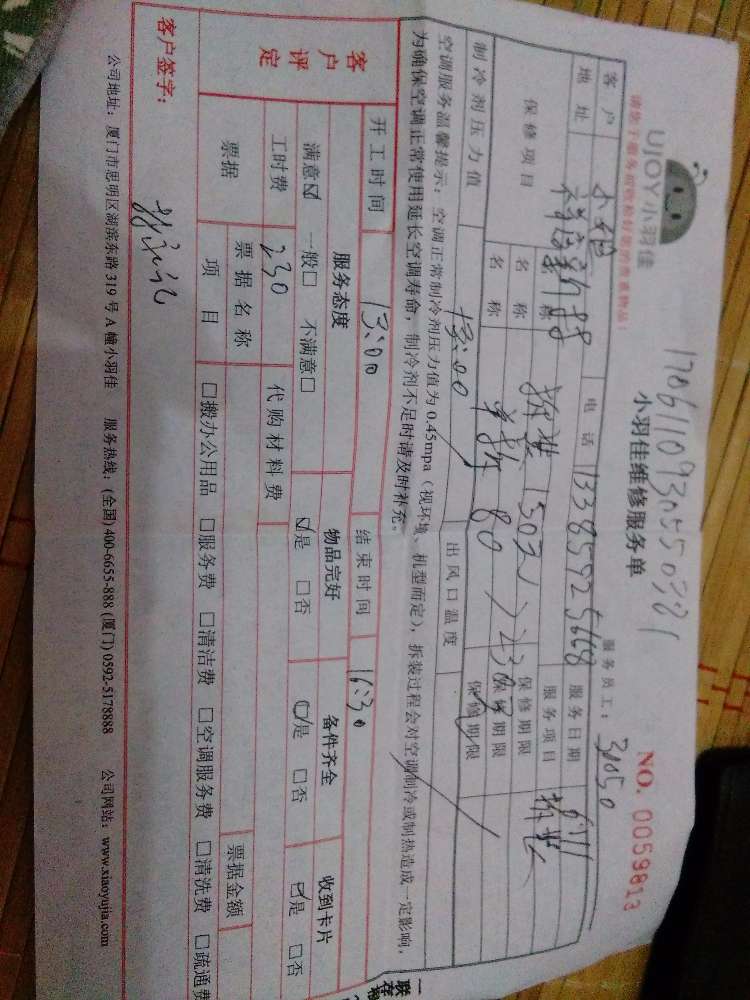 UJOY小羽佳
请您于服务前收检好您的贵重物品!
小羽佳维修服务单
服务员工: 31050
NO. 0059813
客户 小姐 电话 13385925668 服务日期 6/11
地址 服务项目 拆装
保修项目 名称 拆装 150元 保修期限
名称 单拆 80 保修期限
名称 保修期限
制冷剂压力值 出风口温度
13:00
空调服务温馨提示: 空调正常制冷剂压力值为 0.45mpa (视环境、机型而定), 拆装过程会对空调制冷或制热造成一定影响,
为确保空调正常使用延长空调寿命, 制冷剂不足时请及时补充。
开工时间 13:00 结束时间 16:30
客户评定 服务态度 物品完好 备件齐全 收到卡片
满意☑ 一般□ 不满意□ ☑是 □否 ☑是 □否 ☑是 □否
工时费 230 代购材料费
票据 票据名称 票据金额
项目 □搬办公用品 □服务费 □清洁费 □空调服务费 □清洗费 □疏通费
客户签字:
公司地址: 厦门市思明区湖滨东路 319 号 A 幢小羽佳 服务热线: (全国) 400-6655-888 (厦门) 0592-5178888 公司网站: www.xiaoyujia.com
一联